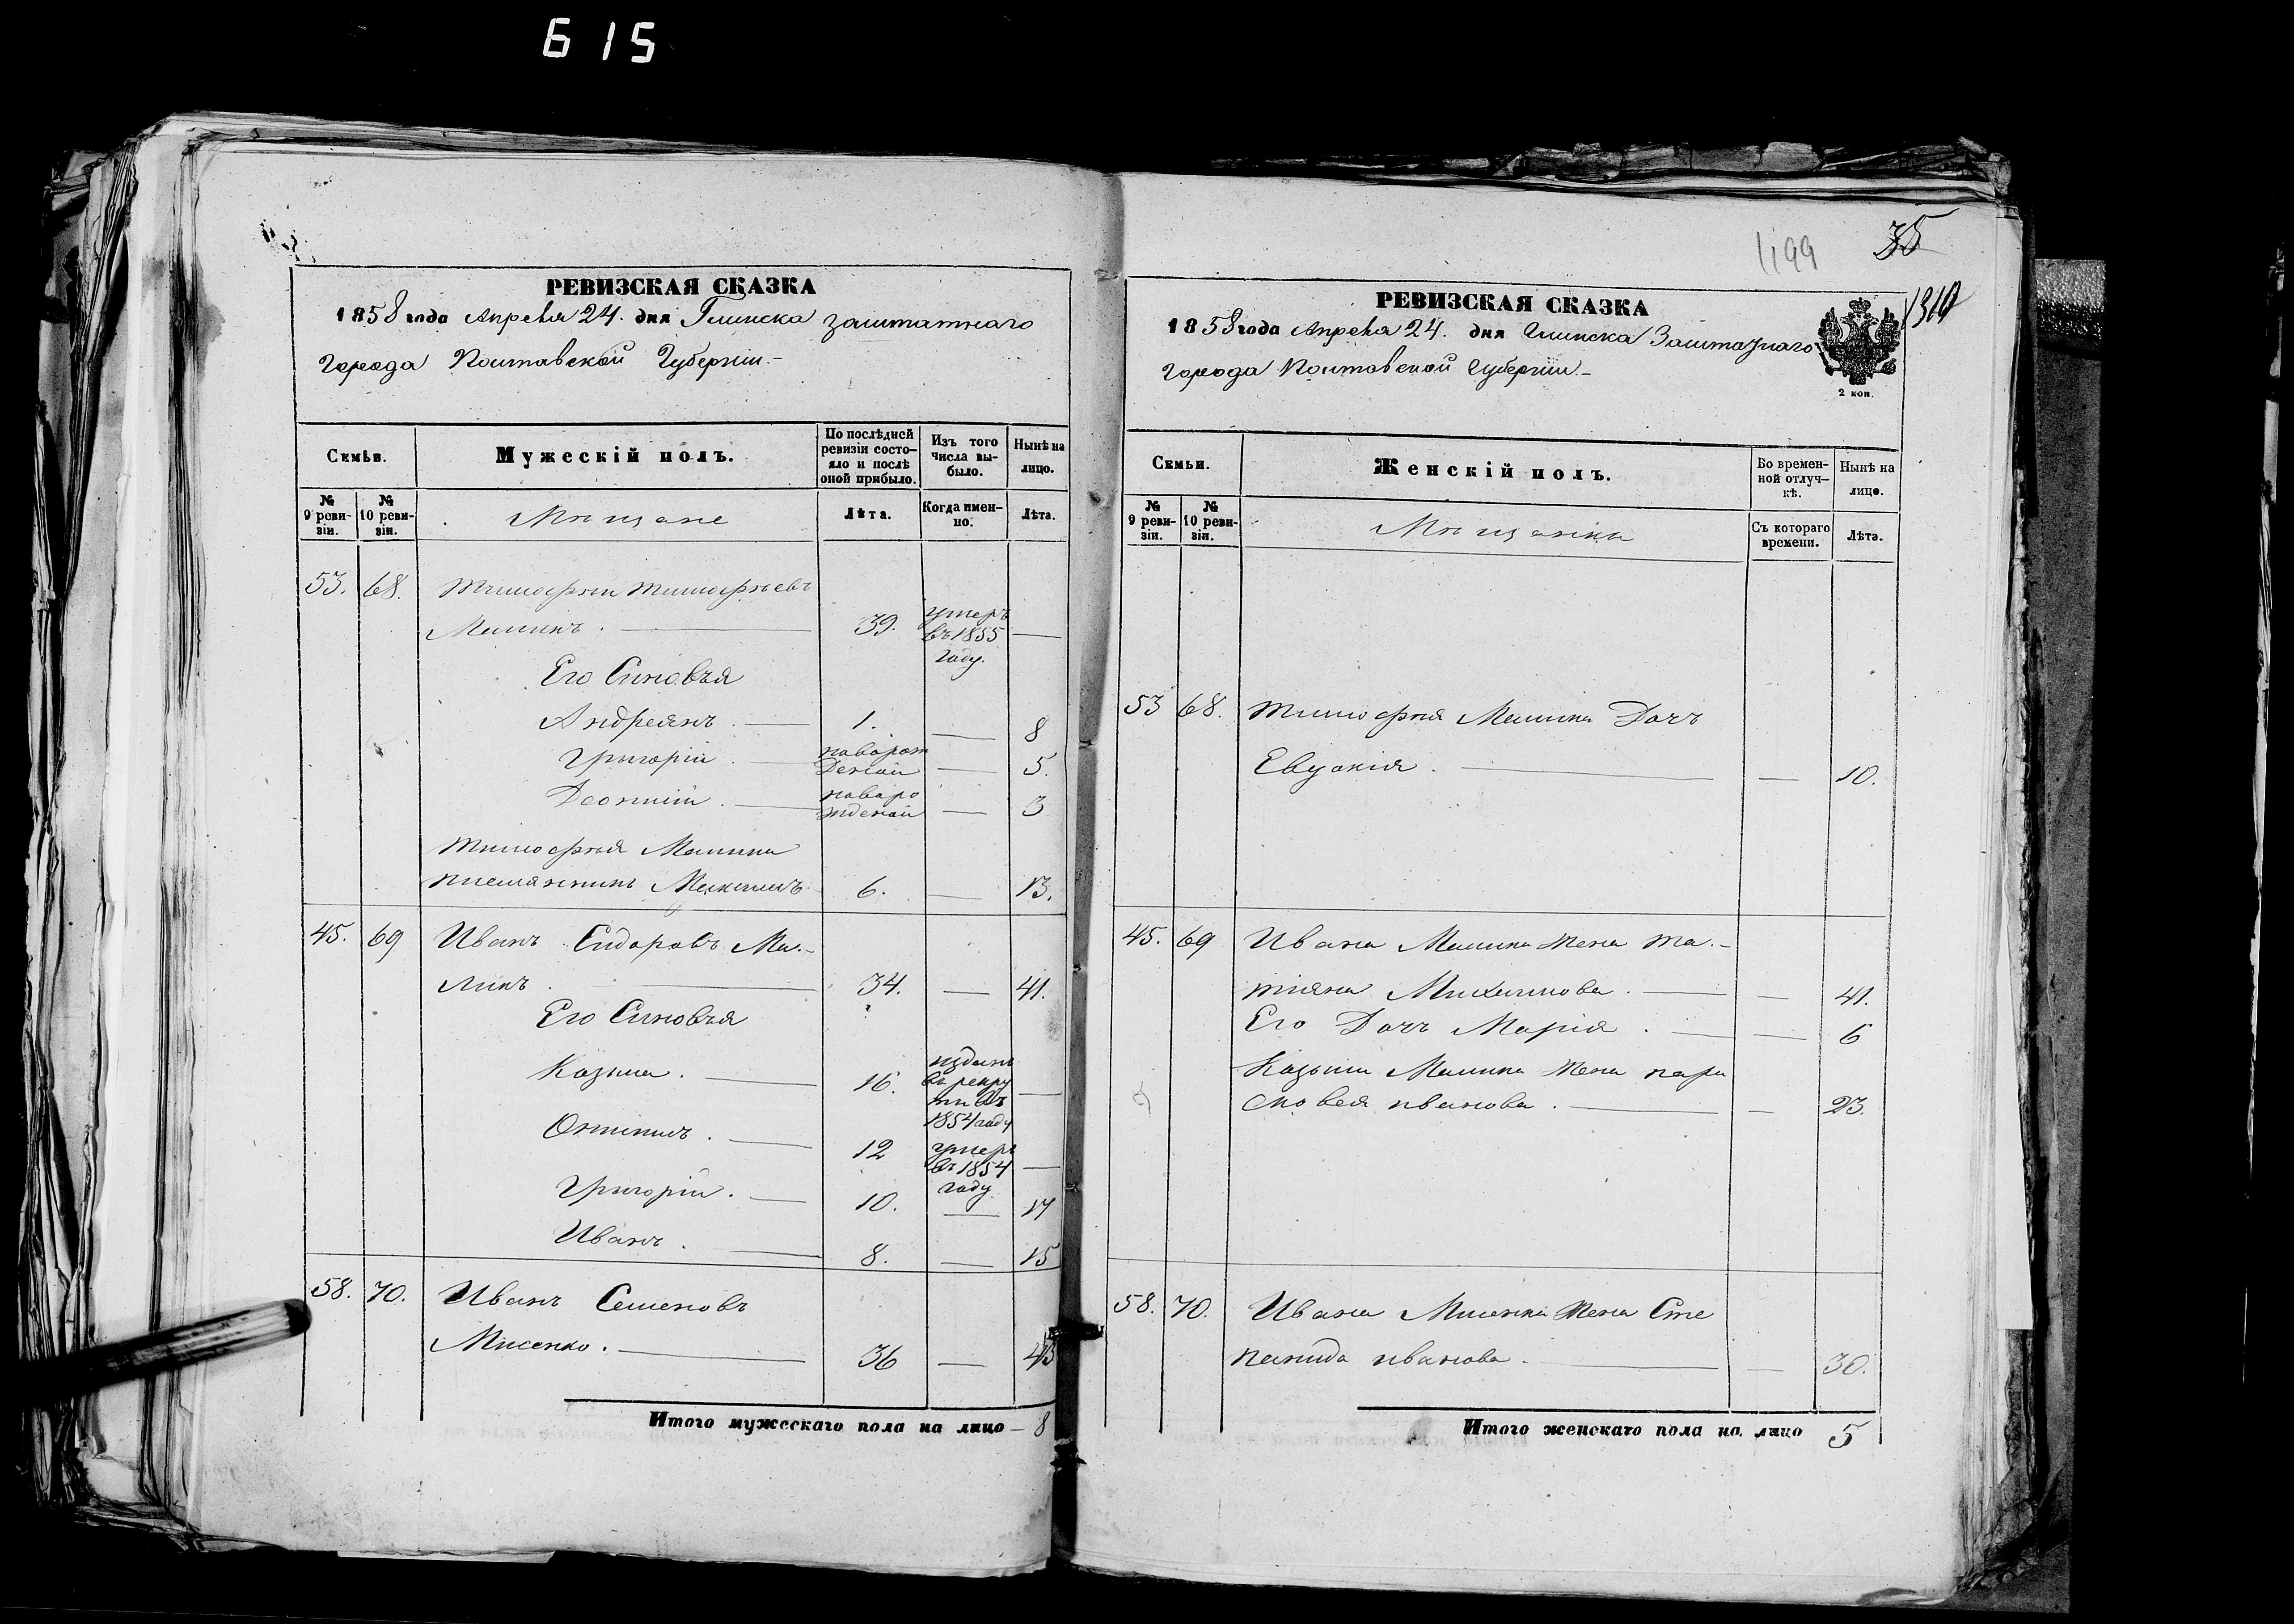 615
РЕВИЗСКАЯ СКАЗКА
1858 года Апреля 24. дня Глинска заштатнаго
города Полтавской Губерніи.-
Семьи.
Мужескій полъ.
По послѣдней ревизіи состояло и послѣ оной прибыло.
Изъ того числа выбыло.
Нынѣ на лицо.
№ 9 ревизіи.
№ 10 ревизіи.
Мѣщане
Лѣта.
Когда именно.
Лѣта.
53. 68. Тимофѣй Тимофѣевъ
Малинъ. 39. умеръ въ 1855 году. —
Его Сыновья
Андреянъ. 1. — 8
Григорій. новорож деной — 5.
Леонтій. новоро жденой — 3
Тимофѣя Малина
племянникъ Максимъ 6. — 13.
45. 69 Иванъ Сидоровъ Ма-
линъ. 34. — 41.
Его Сыновья
Козьма. 16. въ рекру 1854 году —
12 умеръ въ 1854 году —
Григорій. 10. — 17
Иванъ. 8. — 15
58. 70. Иванъ Семеновъ
Мисенко. 36 — 43
Итого мужескаго пола на лицо – 8
1199
35
1310
РЕВИЗСКАЯ СКАЗКА
1858 года Апреля 24. дня Глинска Заштатнаго
города Полтавской Губерніи.-
2 коп.
Семьи.
Женскій полъ.
Во временной отлучкѣ.
Нынѣ на лицо.
№ 9 ревизіи.
№ 10 ревизіи.
Мѣщанки
Съ котораго времени.
Лѣта.
53 68. Тимофѣя Малина Дочь
Евдокія. — 10.
45. 69 Ивана Малина жена Та-
тіяна Михайлова. — 41.
Его Дочь Марія. — 6
Козьмы Малина жена пара
сковея иванова. — 23.
58. 70. Ивана Мисенка жена Сте
панида иванова. — 30.
Итого женскаго пола на лицо 5